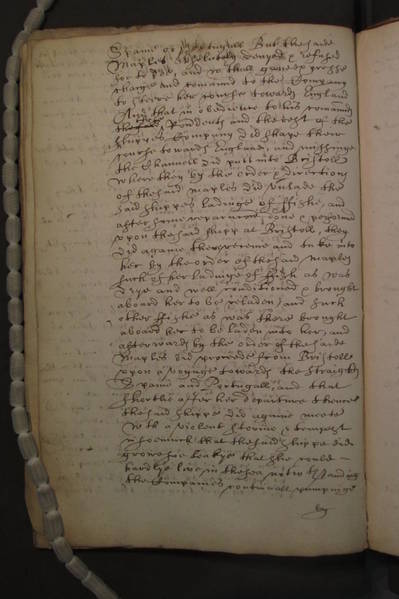 Spaine or Portugall But the saide
Maples absolutely denyed & refused
soe to doe, and withall gave expresse
charge and comand to the Company
to steere her course towards England
And that in obedience to his comaund
the rendents and the rest of the
shippes Company did shape their
course towards England, and missinge
the Channell did putt into Bristoll
where they by the order & directions
of the said Maples did unlade the
said shippes ladinge of ffishe, and
after some reparacons done & pformed
upon the said shipp at Bristoll, they
did againe there receive and take into
her by the order of the said Maples
such of her ladinge of ffish as was
drye and well conditioned & brought
aboard her to be reladen, and such
other ffishe as was there brought
aboard her to be laden into her, and
afterwards by the order of the saide
Maples did proceede from Bristoll
upon a voyage towards the Straights
Spaine and Portugall, and that
shortlie after her departure thence
the said shippe did againe meete
wth a violent storme & tempest
insoemuch that the said shippe did
growe soe leakye that shee could
hardlye live in the sea notwthstanding
the Companies continuall pumpinge